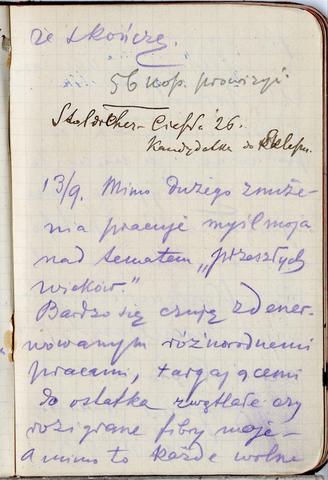 że skończę.
56 kop. prowizyi
Ciepła 26.
Kandydatka do sklepu.
13/9. Mimo dużego znuże-
nia pracuje myśl moja
nad tematem „przeszłych
wieków."
Bardzo się czuję zdener-
wowanym różnorodnemi
pracami, targającemi
do ostatka zwątlałe czy
rozigrane fibry moje –
A mimo to każde wolne